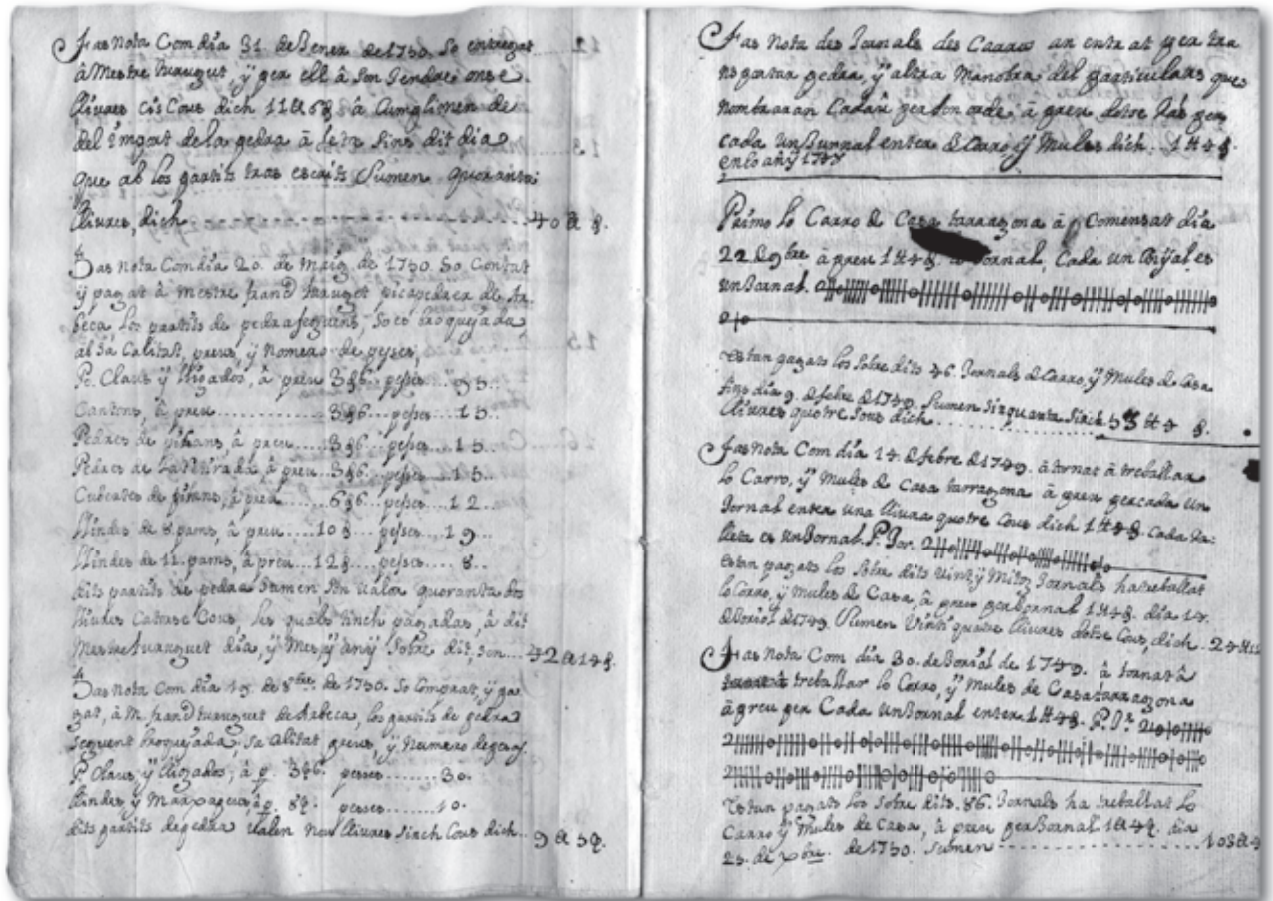 Fas Nota Com dia 31 de Jener de 1750. So entregat
â Mestre turuguet, ÿ per ell â son Jendre onse
lliures sis sous dich 11 ₶ 6 § â Cumplimen de
del import de la pedra â feta fins dit dia
que ab los partits tras escrits Sumen quoranta
lliures, dich 40 ₶ §.
Fas Nota Com dia 20. de Maig de 1750. So Contat
ÿ pagat â mestre turuguet picapedrer de Ar-
beca, los partits de pedra seguens, so es broquejada
al sa Calitat, preus, ÿ Nomero de pesses,
P.º Claus ÿ lligados, â preu 3§6 pesses 95
Cantons, â preu 3§6 pesses 15
Pedres de â preu 3§6 pesses 15
Pedres de La â preu 3§6 pesses 15
de â preu 6§6 pesses 12
llindes de 8 pams, â preu 10 § pesses 19
llindes de 11 pams, â preu 12 § pesses 8
dits partits de pedra Sumen son valor quoranta dos
lliures Catorse Sous les quals tinch pagadas, â dit
Mestre turuguet dia, ÿ Mes, ÿ anÿ Sobre dit, son 42 ₶ 14 §
Fas Nota Com dia 19. de 8bre de 1750. So Comprat, ÿ pa-
gat, â M. turuguet de Arbeca, los partits de pedra
seguent broquejada, sa Calitat preus, ÿ Numero de pesses.
P.º Claus, ÿ lligados, â p. 3§6. pesses 30.
llindes ÿ â p. 8§. pesses 10.
dits partits de pedra valen Nou lliures sinch Sous dich 9 ₶ 5 §.
Fas Nota des Jornals des Carros an entrat per tra
nsportar pedra, ÿ altra Manobra del particulars que
Nombraran Cadaû per son orde â preu
cada un Jornal enter de Carro ÿ Mules dich. 1 ₶ 4 §.
en lo anÿ 1748
Primo lo Carro de Casa tarragona â Comensat dia
22 de 9bre â preu 1 ₶ 4 §. Jornal, Cada un es
un Jornal.
Estan pagats los Sobre dits 46. Jornals de Carro, ÿ Mules de Casa
fins dia 9. de febre de 1749. Sumen sinquanta sinch
lliures quotre Sous dich 55 ₶ 4 §.
Fas Nota Com dia 14. de febre de 1749. â tornat â treballar
lo Carro, ÿ Mules de Casa tarragona â preu per cada un
Jornal enter una lliura quotre Sous dich 1 ₶ 4 §. Cada ta-
lleta es un Jornal. P. Jor.
Estan pagats los Sobre dits Vint ÿ Mitg Jornals ha treballat
lo Carro, ÿ Mules de Casa, â preu per Jornal 1 ₶ 4 §. dia 14.
de 1749. Sumen Vinti quatre lliures dotse Sous, dich 24 ₶ 12
Fas Nota Com dia 30. de de 1749. â tornat â
treballar lo Carro, ÿ Mules de Casa tarragona
â preu per Cada un Jornal enter 1 ₶ 4 §.
Estan pagats los Sobre dits. 86. Jornals ha treballat lo
Carro ÿ Mules de Casa, â preu per Jornal 1 ₶ 4 §. dia
de Xbre. de 1750. Sumen 103 ₶ 4